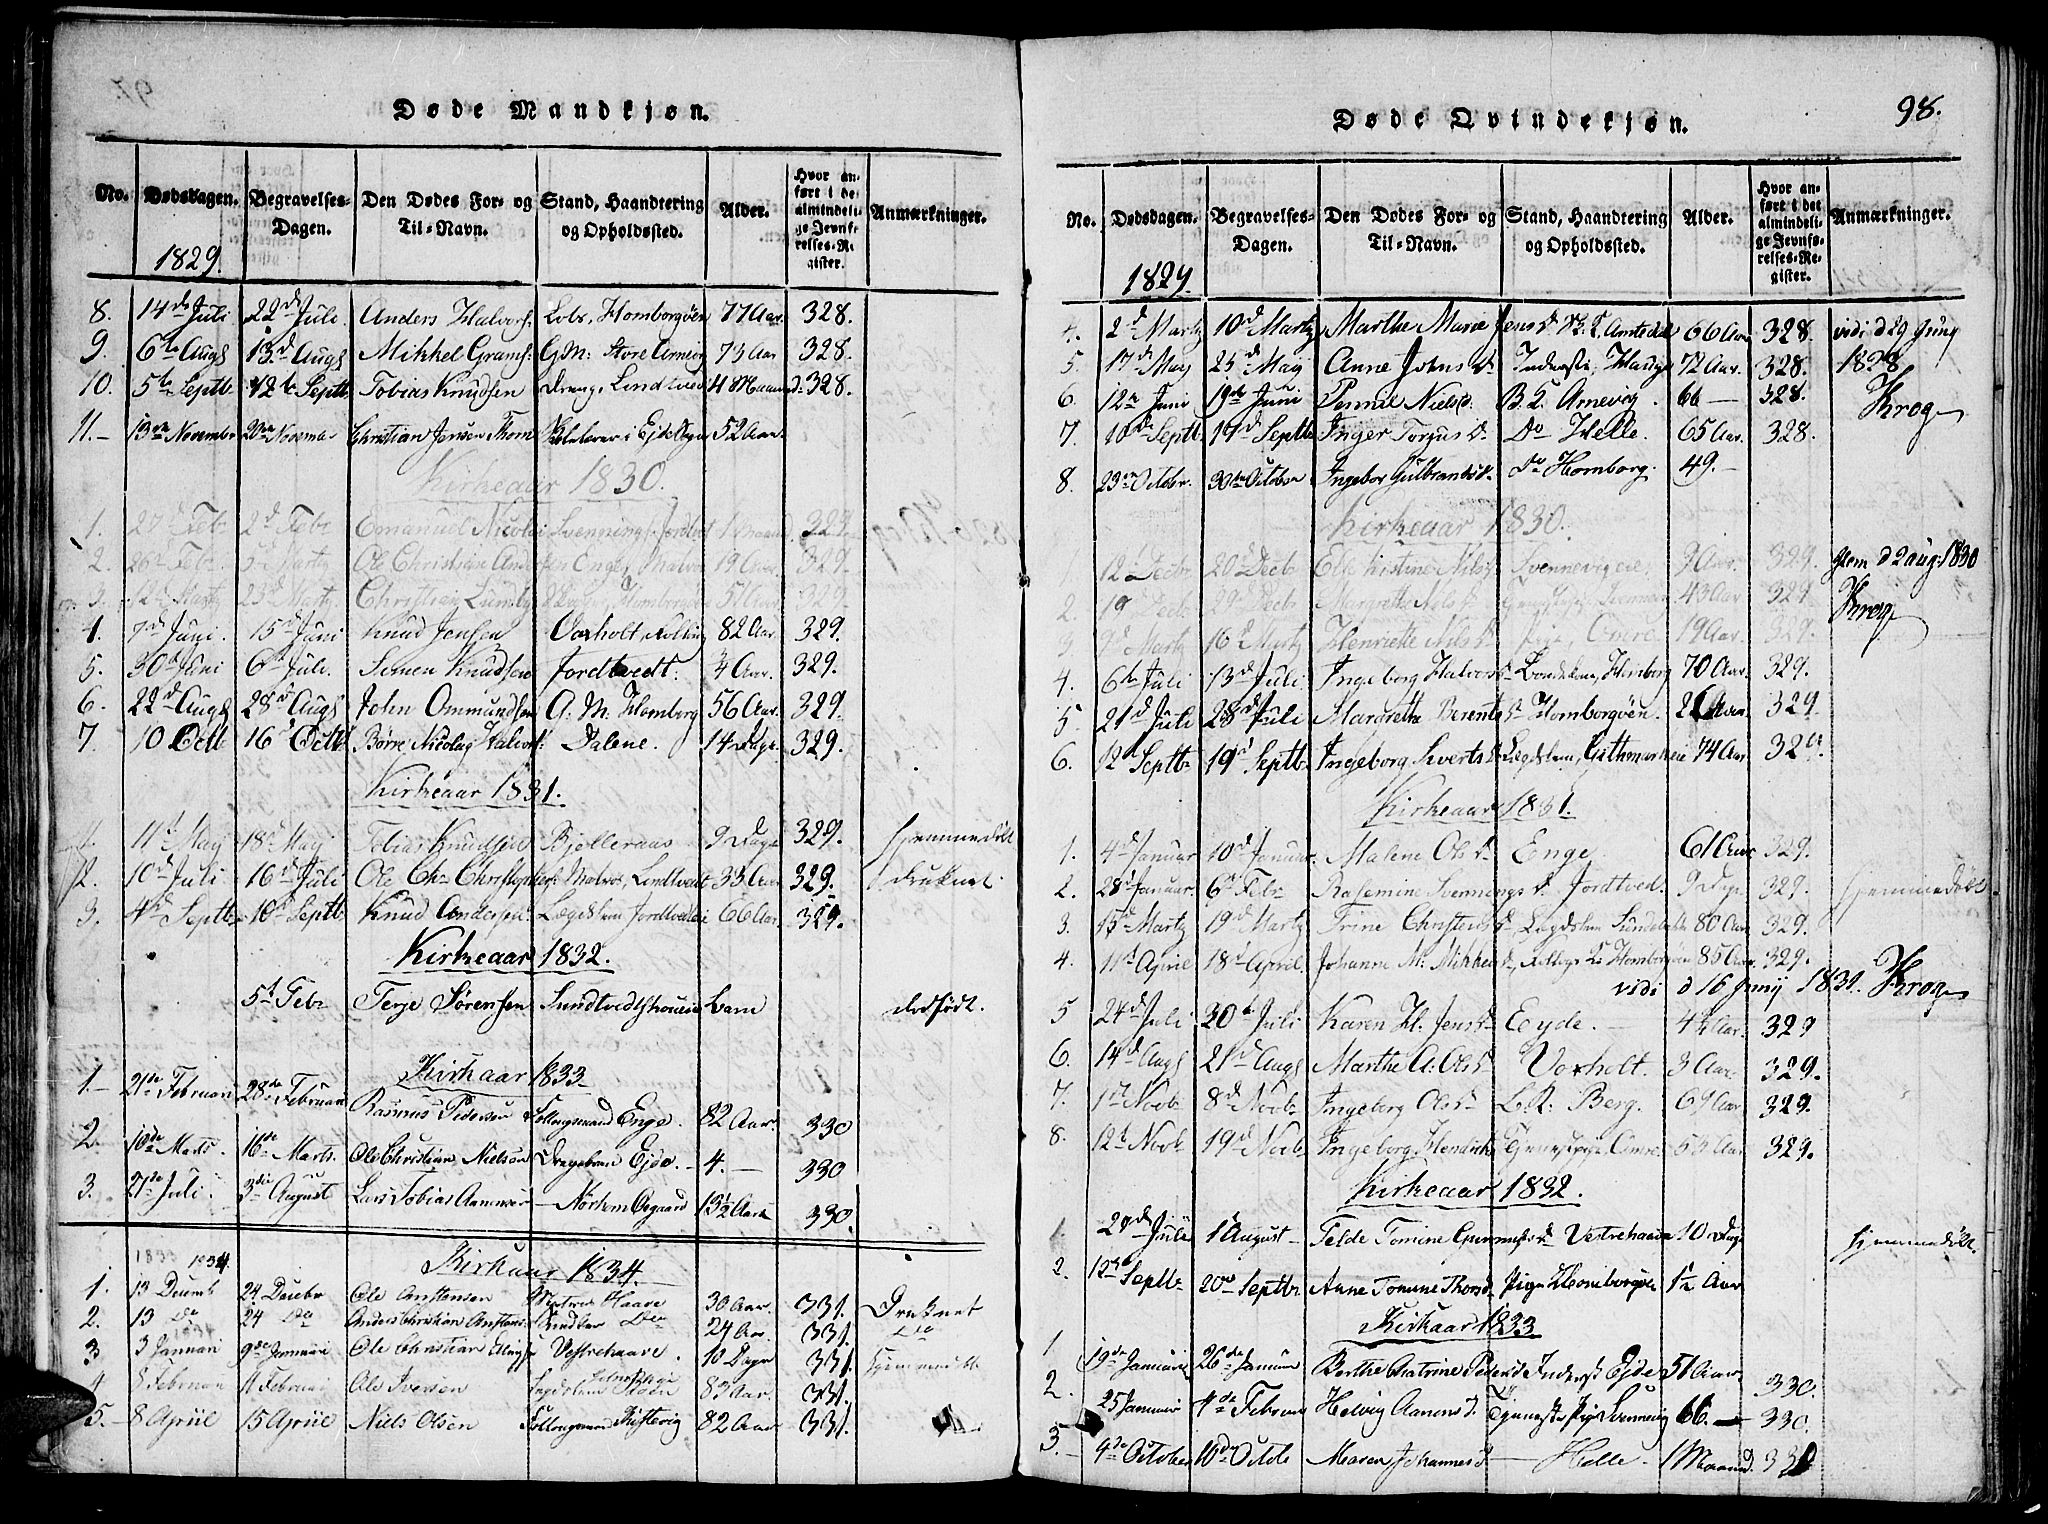 Døde Mandkjøn.
No. Dødsdagen. Begravelses-Dagen. Den Dødes For- og Til-Navn. Stand, Haandtering og Opholdssted. Alder. Hvor anført i de almindelige Jevnførelses-Register. Anmærkninger.
1829.
8. 14de Juli 22de Juli. Anders Halvors: Lods, Homborgöen 77 Aar. 328.
9. 6te Augs 13d Augs Mikkel Grams: G.M: Store Arnevig 73 Aar 328.
10. 5te Septb. 12te Septb. Tobias Knudsen Dreng, Lindtved 4 Maaned. 328.
11. 13de November Christian Jensen 52 Aar.
Kirkeaar 1830.
1. 27d Feb: 2d Feb: Emanuel Nicolai Svennings: Jordtvet 1 Maaned 329.
2. 26d Feb: 5d Martz Ole Christian Andersen Enge, Matros 19 Aar 329.
3. Martz 23d Martz. Christian Lindby Homborgöen 51 Aar 329.
4. 7d Juni. 15d Juni Knud Jensen Vaxholt, 82 Aar 329.
5. 30d Juni 6te Juli. Simen Knudsen Jordtvedt. 4 Aar. 329.
6. 22d Augs 28d Augs John Ommundsen A. M. Homborg 56 Aar. 329.
7. 10 Octb 16d Octb Børre Nicolay Halvors: Dalene. 14 Dage. 329.
Kirkeaar 1831.
1. 11t Maj 18d Maj Tobias Knudsen Bjelleraas 9 Dage 329. hjemmedöbt
2. 10d Juli 16d Juli Ole Chr. Christophers: Matros, Lindtvedt 33 Aar 329. druknet.
3. 4d Septb 10d Septb Knud Anders: Lægdslem Jordtvedt 66 Aar. 329.
Kirkeaar 1832.
5t Feb: Terje Sörensen Sundtvedt Barn dødfödt.
Kirkaar 1833
1. 21de Februari 28de Februari Rasmus Pedersen Follaugsmand Enge. 82 Aar. 330
2. 10de Marts. 16de Marts. Ole Christian Nielsen Drengebarn Ejde. 4. 330
3. 27de Juli. 3die August Lars Tobias Aanensen Nörholm 13½ Aar 330.
1834
Kirkaar 1834.
1. 13 Decemb 24 December Ole Anstensen Vestre Haave 30 Aar. 331. Druknet
2. 13 Do 24 Do Anders Christian Anstens: Do 24 Aar. 331. Do
3. 3 Januari 9de Januari Ole Christian Vestrehaave. 10 Dage 331. hjemmedöbt
4. 5 Februari 11 Februari Ole Iversen 83 Aar. 331.
5. 8 Apriil 15 Apriil Niels Olsen Follaugsmand Kiftevig 82 Aar 331.
98.
Døde Qvindekjøn.
No. Dødsdagen. Begravelses-Dagen. Den Dødes For- og Til-Navn. Stand, Haandtering og Opholdssted. Alder. Hvor anført i det almindelige Jevnførelses-Register. Anmærkninger.
1829.
4. 2d Martz 10d Martz Marthe Marie Jens D. 66 Aar 328. vidi d 29 Juny
5. 17d Maj 25d Maj Anne Johns D. Inderste, Hauge 72 Aar. 328. 1828
6. 12te Juni 19de Juni Pernil Niels D. Arnevig. 66 — 328. Krog
7. 10de Septb 17d Septb Inger Torjus D. Do Helle. 65 Aar. 328.
8. 23de Octobr. 30de October Ingebor Gulbrands D. Do Homborg. 49.
Kirkeaar 1830.
12t Decbr 20d Decb Else Kistine Nils D. Svennevig 9 Aar. 329. Item d 2 aug: 1830
2. 19 Decb. 29d Decb Margrethe Nels D. 43 Aar 329 Krog
3. 9d Martz 16d Martz Henriette Nils D. Pige, Omre. 19 Aar 329.
4. 6te Juli 13d Juli Ingeborg Halvors D. Homborg 70 Aar. 329.
5 21d Juli 28d Juli Margrethe Berents D. Homborgöen. 329
6. 12d Septb 19d Septb Ingeborg Siverts D. Lægdslem, Githmarkeie 74 Aar 329
Kirkeaar 1831.
1. 4d Januar 10d Januar. Malene Ols D. Enge. 61 Aar 329.
2. 28d Januar. 6te Feb: Rasemine Svennings D. Jordtved. 9 Dage 329. hjemmedöbt
3. 15d Martz 19d Martz Trine Christens D. Lægdslem 80 Aar 329.
4. 11d April 18d April. Johanne M: Mikkels D. Homborgöen 85 Aar. 329.
vidi d 16 Junij 1831. Krog
5 24d Juli 30te Juli Karen H. Jens D. Eyde. 4½ Aar. 329
6. 14d Augs 21d Augs Marthe A: Ols D. Voxholt. 3 Aar. 329.
7. 1st Novb 8d Novb: Ingeborg Ols D. L.K: Berg. 69 Aar 329.
8. 12t Novb 19d Novb: Ingeborg Hendriks Tjenestpige Omre 55 Aar 329.
Kirkeaar 1832.
1 29d Julie 1 August Telde Tomine Gunnufs D. Vestrehaave 10 Dage hjemmedöbt.
2. 12d Septb 20de Septb: Anne Tomine Thors D. Pige Homborgöen 1½ Aar
Kirkaar 1833
1 19de Januari 26de Januar Berthe Katrine Peders D Inderst Ejde 51 Aar. 330.
2. 25 Januari 4de Februar Helvig Aanens D. Tjenestepige Svennevig 66. — 330.
3. 4de October 10de Octob Maren Johannes D — Helle. 1 Maaned. 330